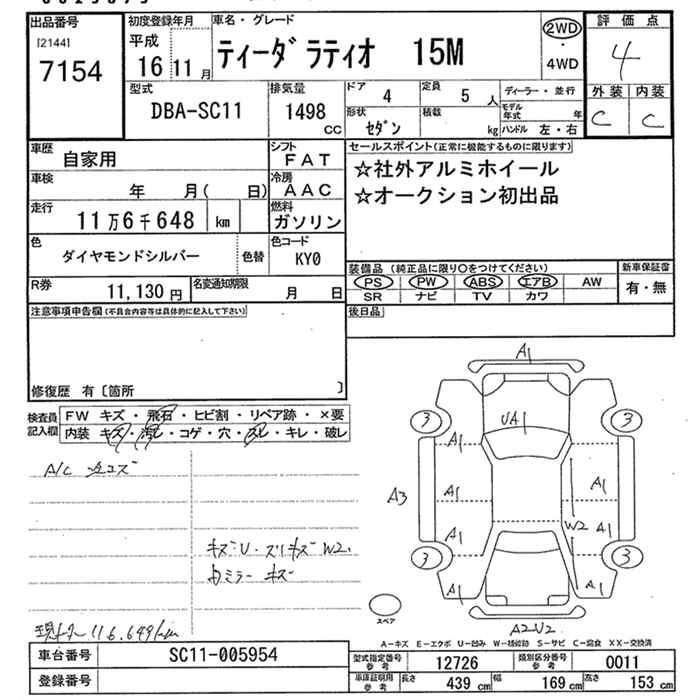 出品番号
[2144]
7154
初度登録年月
平成
16 11 月
車名・グレード
ティーダラティオ 15M
2WD
・
4WD
評価点
4
外装 内装
C C
型式
DBA-SC11
排気量
1498
CC
ドア 4
定員 5 人
形状 セダン
積載 kg
ディーラー・並行
モデル年式 年
ハンドル 左・右
車歴 自家用
シフト FAT
車検 年 月( 日)
冷房 AAC
走行 11万6千648 km
燃料 ガソリン
色 ダイヤモンドシルバー
色替
色コード KY0
R券 11,130円
名変通知期限 月 日
セールスポイント(正常に機能するものに限ります)
☆社外アルミホイール
☆オークション初出品
装備品(純正品に限り〇をつけてください)
PS PW ABS エアB AW
SR ナビ TV カワ
新車保証書
有・無
後日品
注意事項申告欄(不具合内容等は具体的に記入して下さい)
修復歴 有〔箇所 〕
検査員記入欄
FW キズ・飛石・ヒビ割・リペア跡・×要
内装 キズ・汚レ・コゲ・穴・スレ・キレ・破レ
A/C
キズU・スリキズW2.
内ミラーキズ
116,649km
A1
3 3
UA1
A1
A3
A1 A1
W2
A1 A1
3 3
A1 A1
スペア
A2U2
A-キズ E-エクボ U-凹み W-補修跡 S-サビ C-腐食 XX-交換済
車台番号 SC11-005954
登録番号
型式指定番号参考 12726
類別区分番号参考 0011
車庫証明用参考 長さ 439 cm 幅 169 cm 高さ 153 cm